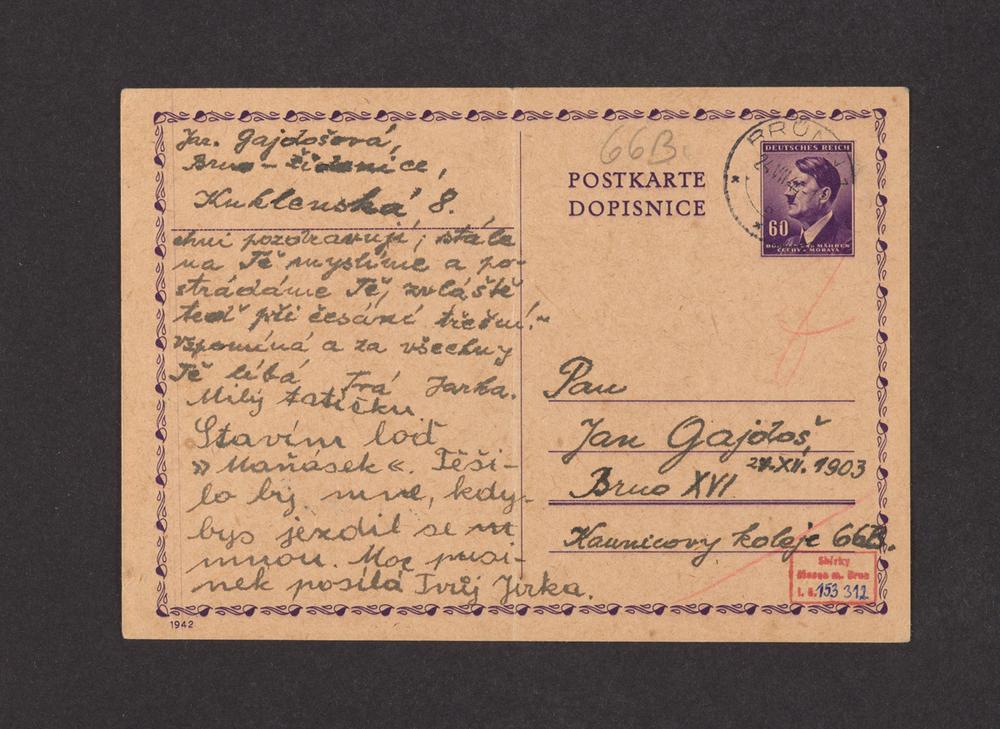 Jar. Gajdošová,
Brno - Židenice,
Kuklenská 8.
chni pozdravují, stále
na Tě myslíme a po-
strádáme Tě, zvláště
teď při česání třešní.
Vzpomíná a za všechny
Tě líbá Tvá Jarka.
Milý tatíčku
Stavím loď
"Maňásek". Těši-
lo by mne, kdy-
bys jezdil se
mnou. Moc pusi-
nek posílá Tvůj Jirka.
1942
66B.
POSTKARTE
DOPISNICE
BRÜNN
DEUTSCHES REICH
60
BÖHMEN UND MÄHREN
ČECHY A MORAVA
Pan
Jan Gajdoš
27.XII.1903
Brno XVI
Kaunicovy koleje 66B.
Sbírky
Musea m. Brna
i. č. 153 312